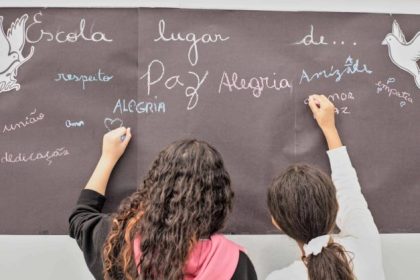 Escola lugar de...
respeito Paz Alegria Amizade
empatia
ALEGRIA AMOR
união ama PAZ
dedicação